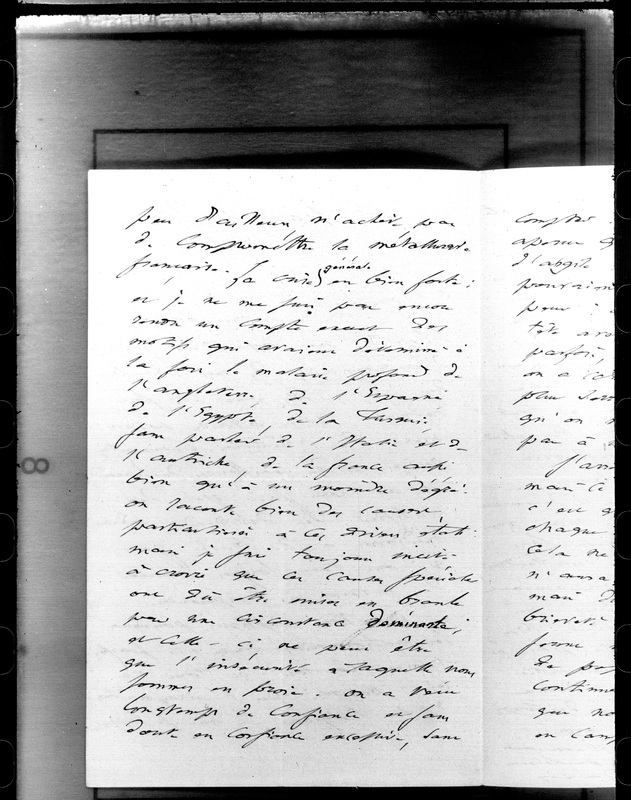 peu d'ailleurs n'achève pas
de compromettre la métallurgie
française. La crise générale en bien forte :
et je ne me suis pas encore
rendu un compte exact des
motifs qui avaient déterminé à
la fois le malaise profond de
l'angleterre, de l'Espagne
de l'Egypte, de la Turquie,
sans parler, de l'Italie et de
l'autriche, de la france aussi
bien qu'à un moindre degré.
on raconte bien des causes
particulières à ces divers états :
mais je suis toujours incité
à croire que ces causes spéciales
ont dû être mises en branle
par une circonstance dominante ;
et celle-ci ne peut être
que l'insécurité à laquelle nous
sommes en proie. on a vécu
longtemps de confiance et sans
doute en confiance excessive, sans
compter
d'
pourraient
pour :
parfois,
on a
qu'on
pas à
J'
mais
c'est
chaque
Cela ne
n'aura
mais
brièveté
forme
de
continue
que
en
8